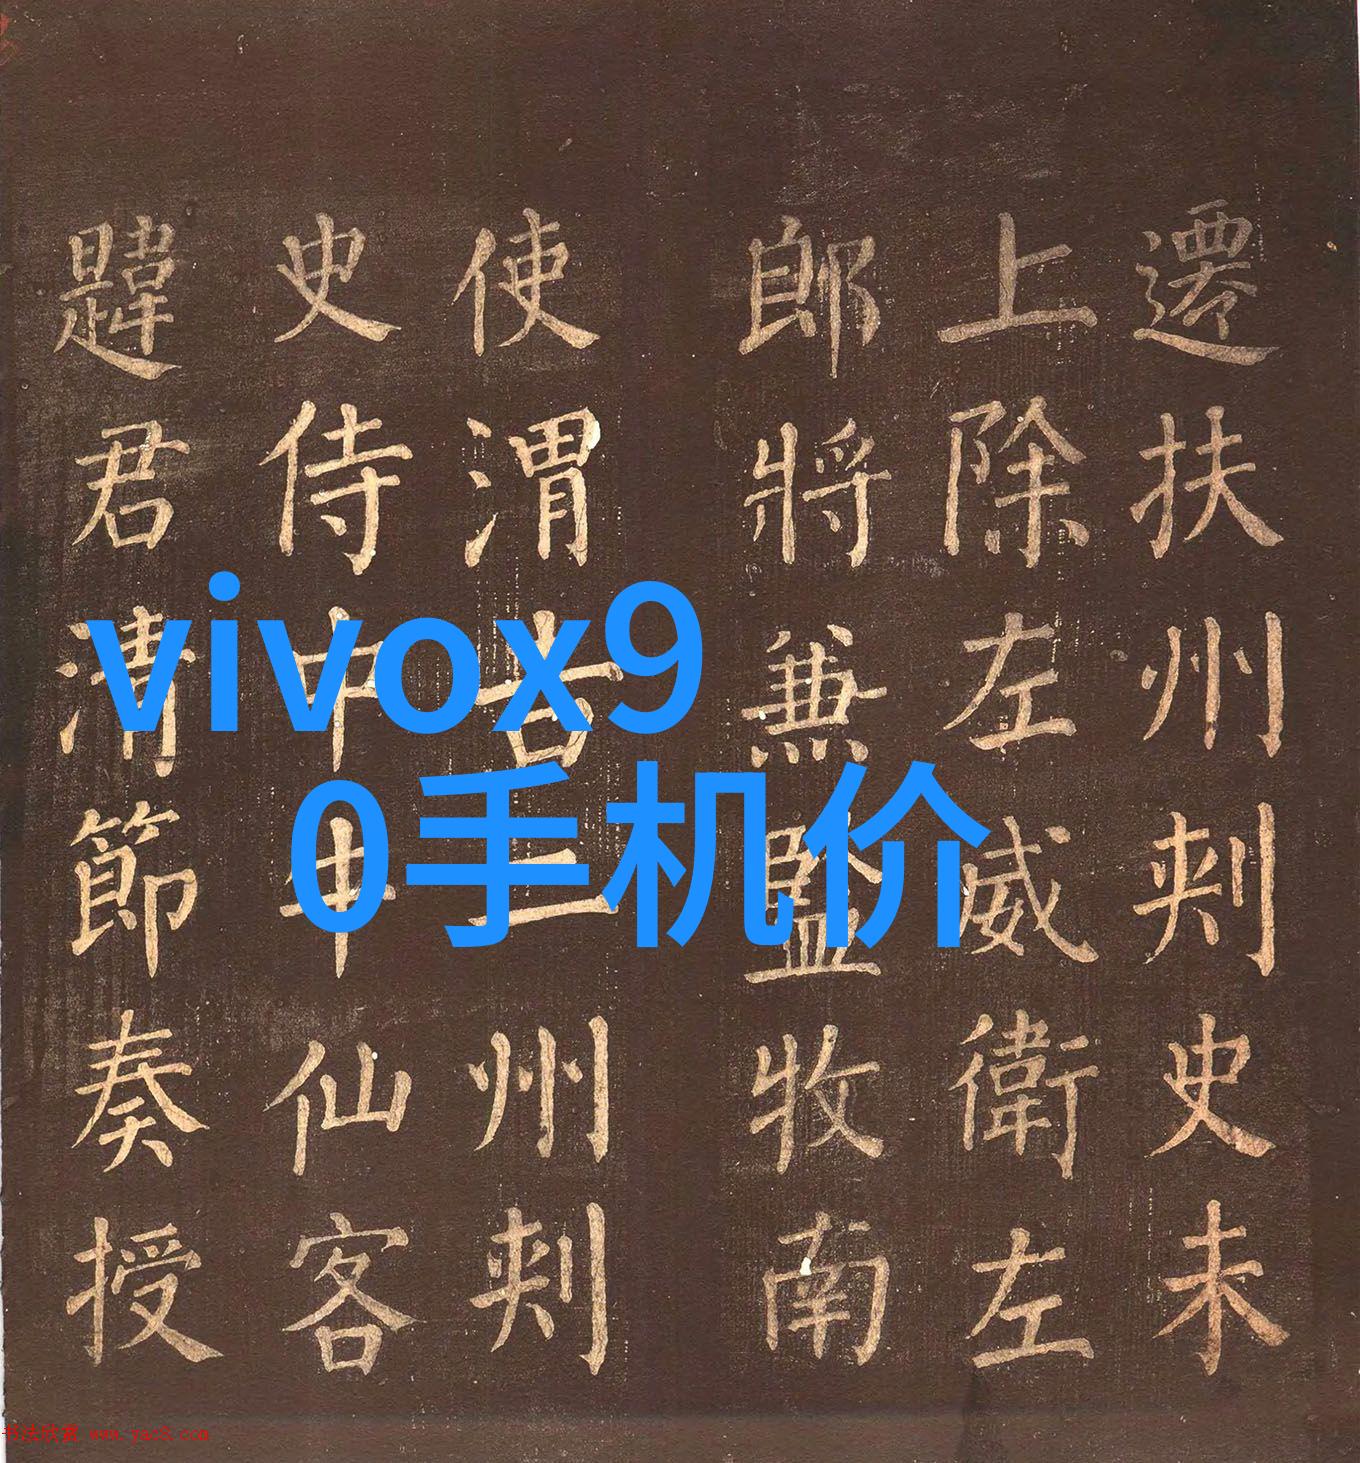 遷扶州刺史未
上除左威衛左
郎將兼監牧南
使渭吉二州刺
史侍中牛仙客
韙君清節奏授
vivox9
0手机价
书法欣赏 www.yac8.com